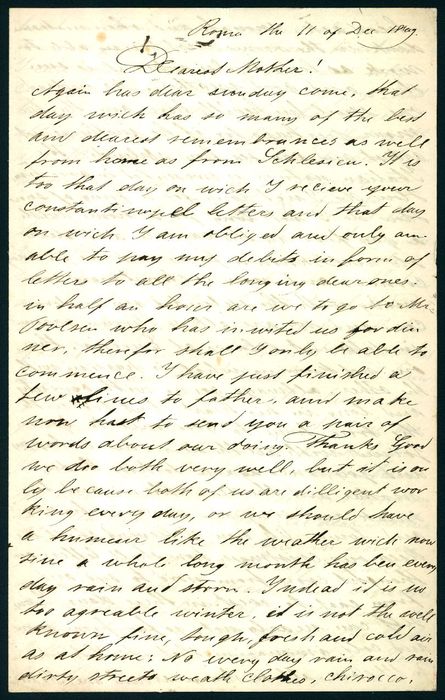 Roma the 11 of Dec
Dearest Mother!
Again has dear sunday come, that
day wich has so many of the best
and dearest remembrances as well
from home as from Schlesien. It is
too that day on wich I recieve your
constantinopel letters and that day
on wich I am obliged and only am
able to pay my debits in form of
letters to all the longing dear ones.
in half an hour are we to go to Mr
who has invited us for din
ner, therefor shall I only be able to
commence. I have just finished a
few lines to father, and make
now hast to send you a pair of
words about our doing. Thanks Good
we doo both very well, but it is on
ly because both of us are dilligent wor
king every day, or we should have
a humeur like the weather wich now
sinc a whole long month has ben every
day rain and storm. Indeed it is no
too agreable winter, it is not the well
known fine, tough, fresh and cold air
as at home; No every day rain and rain
dirty streets weath clothes, chirocco,